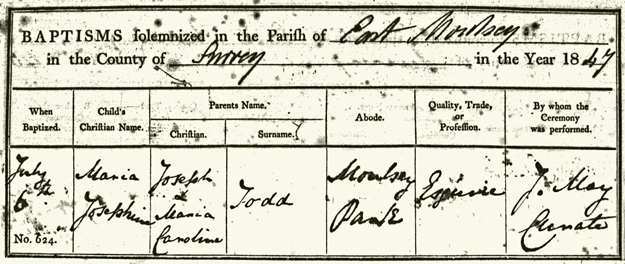 BAPTISMS solemnized in the Parish of East Moulsey
in the County of Surrey in the Year 1847
When Baptized.
Child's Christian Name.
Parents Name.
Christian.
Surname.
Abode.
Quality, Trade, or Profession.
By whom the Ceremony was performed.
July 6th
Maria Josephine
Joseph & Maria Caroline
Todd
Moulsey Park
Esquire
J. May Curate
No. 624.